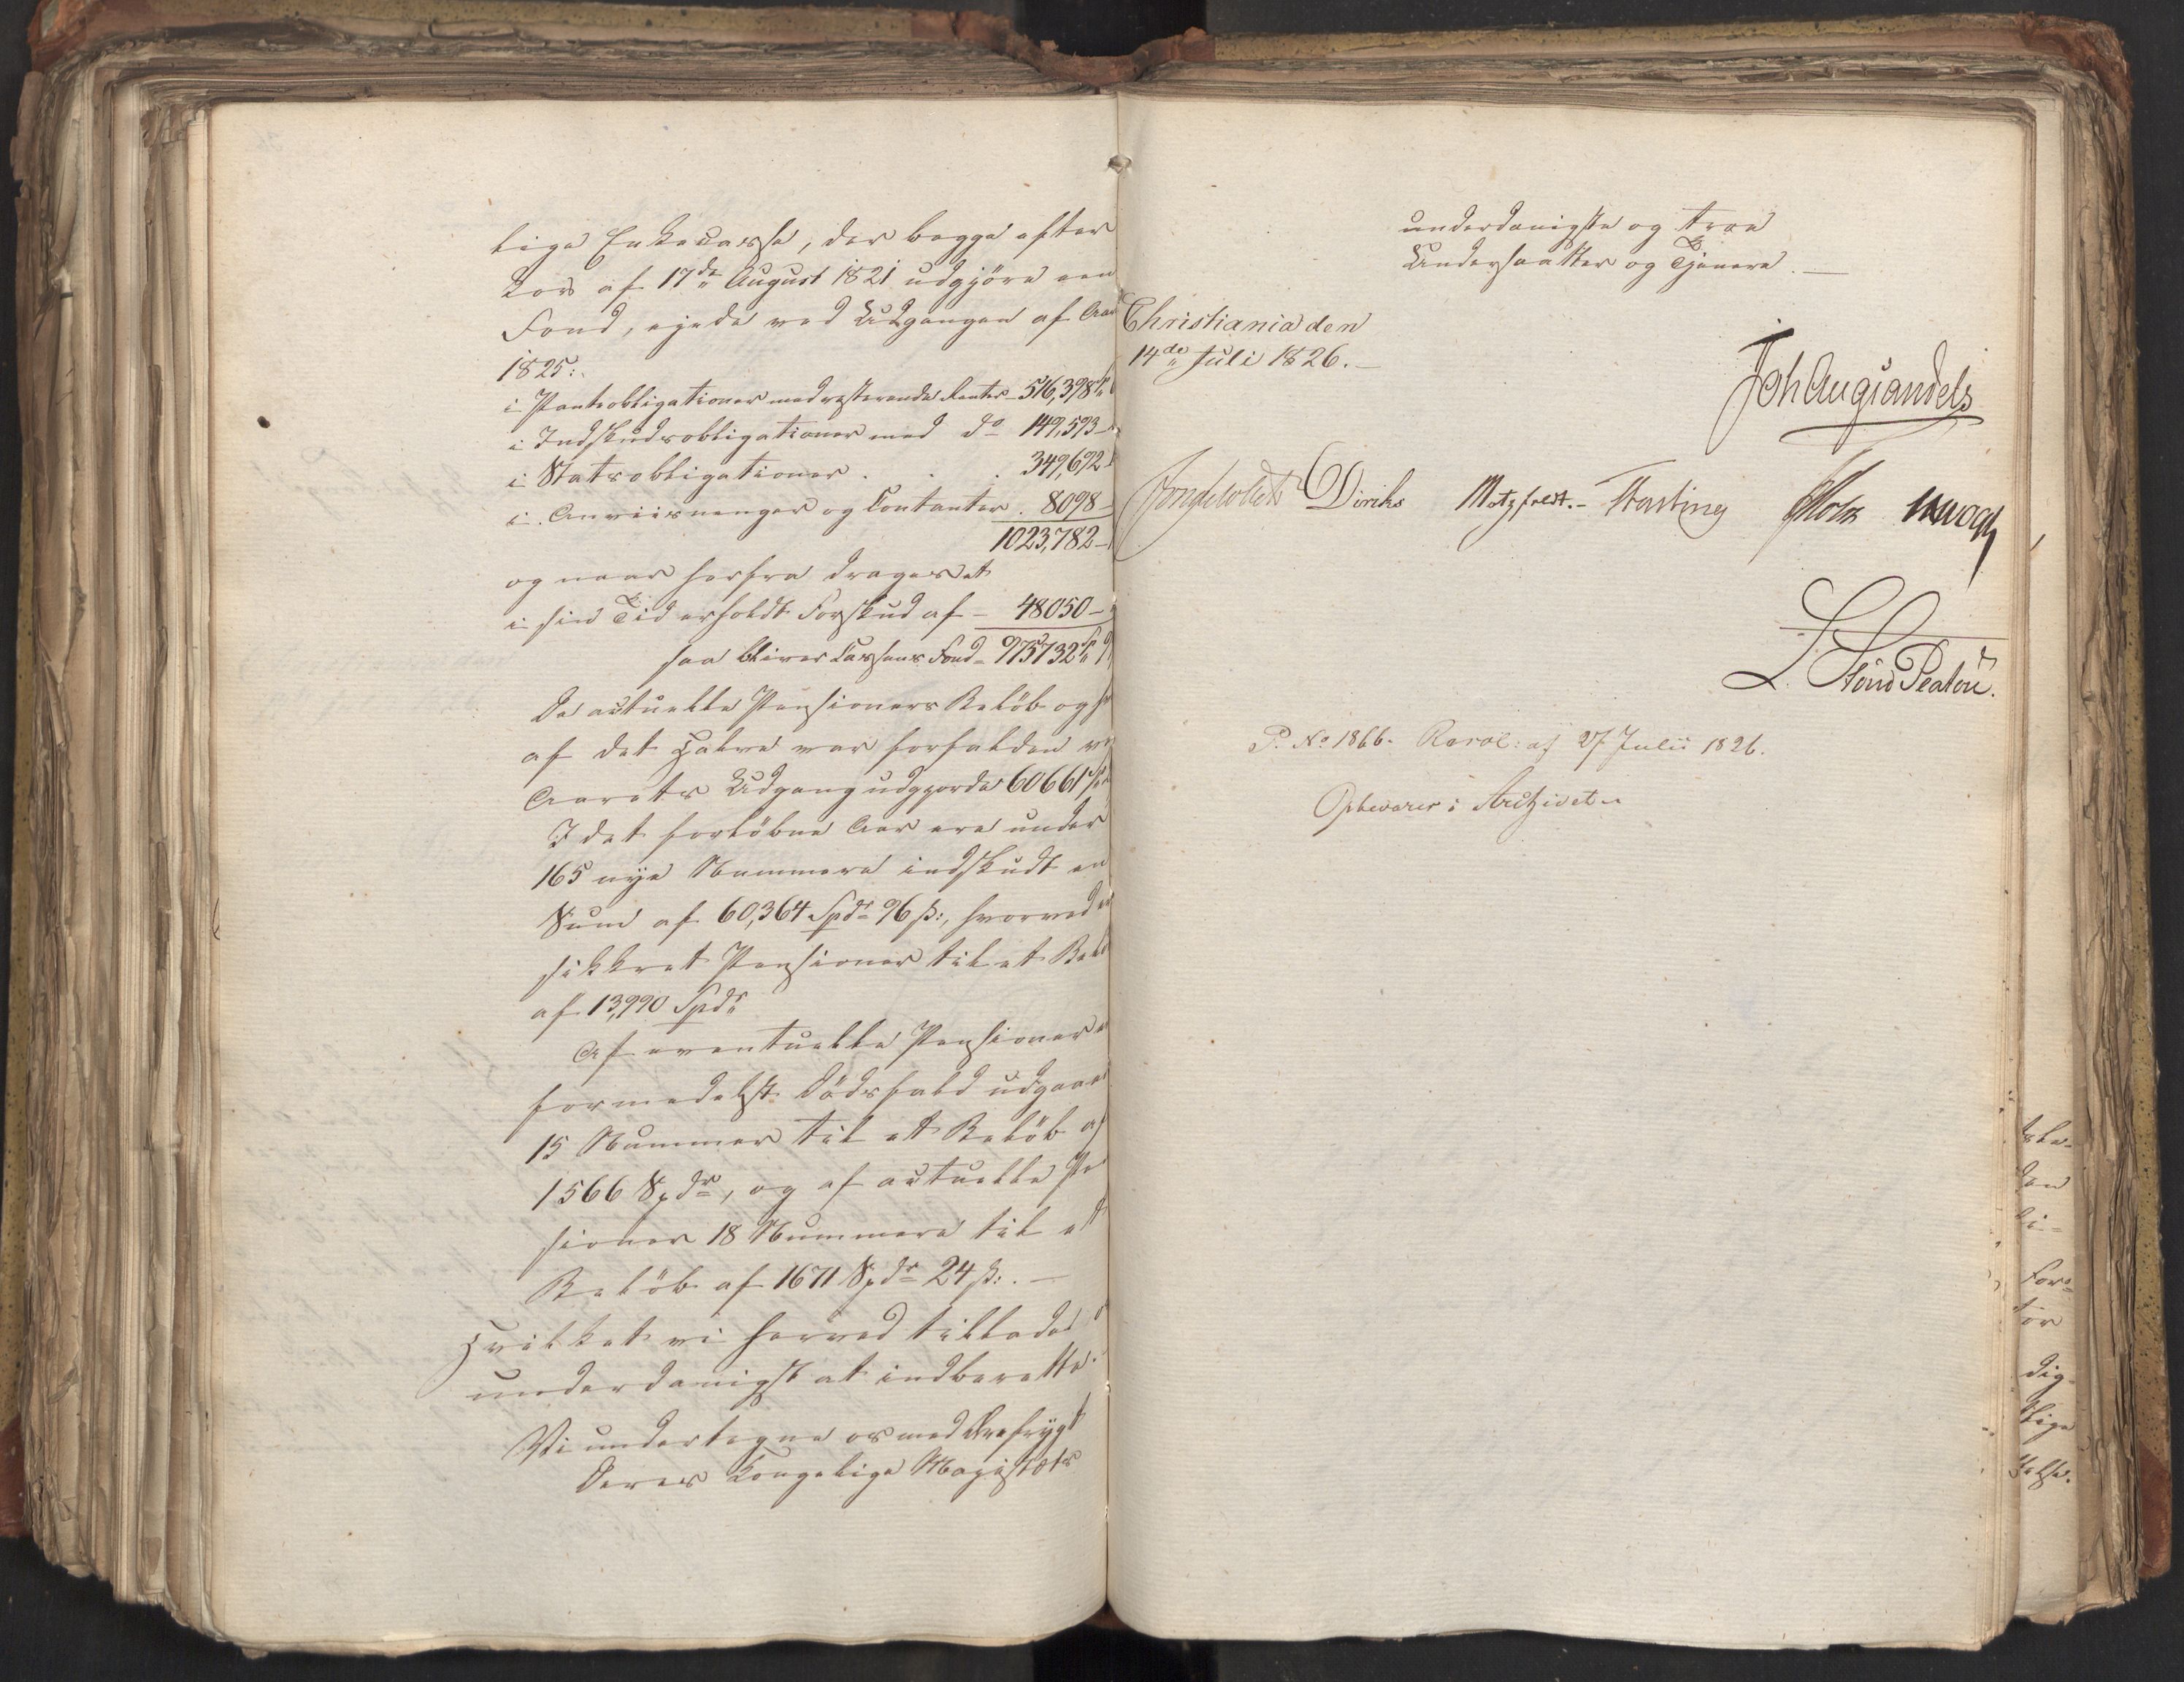 lige Enkecasse, der begge efter
Lov af 17de August 1821 udgjöre een
Fond, ejede ved Udgangen af Aar
1825:
i Panteobligationer med resterende Renter - 516,398
i Indskudsobligationer med do 149,593 -
i Statsobligationer . . . 349,692
i Anviisninger og Contanter . 8098 -
1023,782 -
og naar herfra drages et
i sin Tid erholdt Forskud af - 48050 -
saa bliver Cassens Fond - 975732
De actuelle Pensioners Belöb og
af det Halve var forfalden
Aarets Udgang udgjorde 60661
I det forløbne Aar ere under
165 nye Nummere indskudt en
Sum af 60,364 Spdr 96 ß:, hvorved er
sikkret Pensioner til et Belö
af 13,990 Spdr
Af eventuelle Pensioner
formedelst Dödsfald udgaaet
15 Nummer til et Belöb af
1566 Spdr, og af actuelle Pen
sioner 18 Nummere til et
Belöb af 1671 Spdr 24 ß:. —
Hvilket vi herved tillade
underdanigst at indberette.
Vi undertegne os med Ærefrygt
Deres Kongelige Majestæts
underdanigste og troe
Undersaatter og Tjenere. —
Christiania den
14de Juli 1826. —
Joh Aug Sandels
Diriks Motzfeldt. - Fasting Holst Krogh
P. No 1866. Resol: af 27 Julii 1826.
Opbevares i Archivet